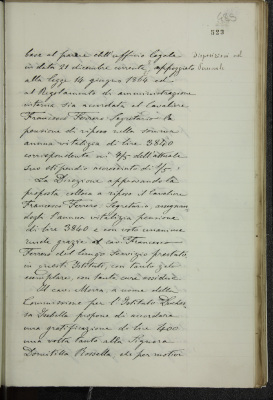 523
base al parere dell'ufficio legale
in data 21 dicembre corrente, appoggiato
disposizioni ed
alla legge 14 giugno 1864 ed
al Regolamento di amministrazione
interna sia accordata al Cavaliere
Francesco Ferrero Segretario la
pensione di riposo nella somma
annua vitalizia di lire 3840
corrispondente ai 4/5 dell'attuale
suo stipendio accresciuto di 1/5.
La Direzione approvando la
proposta colloca a riposo il Cavaliere
Francesco Ferrero Segretario, assegnan
dogli l'annua vitalizia pensione
di lire 3840 e con voto unanime
rende grazie al cav. Francesco
Ferrero del lungo servizio prestato
in questo Istituto, con tanto zelo
esemplare, con tanta cura assidua.
Il cav. Mussa a nome della
Commissione per l'Istituto Duches
sa Isabella propone di accordare
una gratificazione di lire 400
una volta tanto alla Signora
Domitilla Rossella, che per motivi